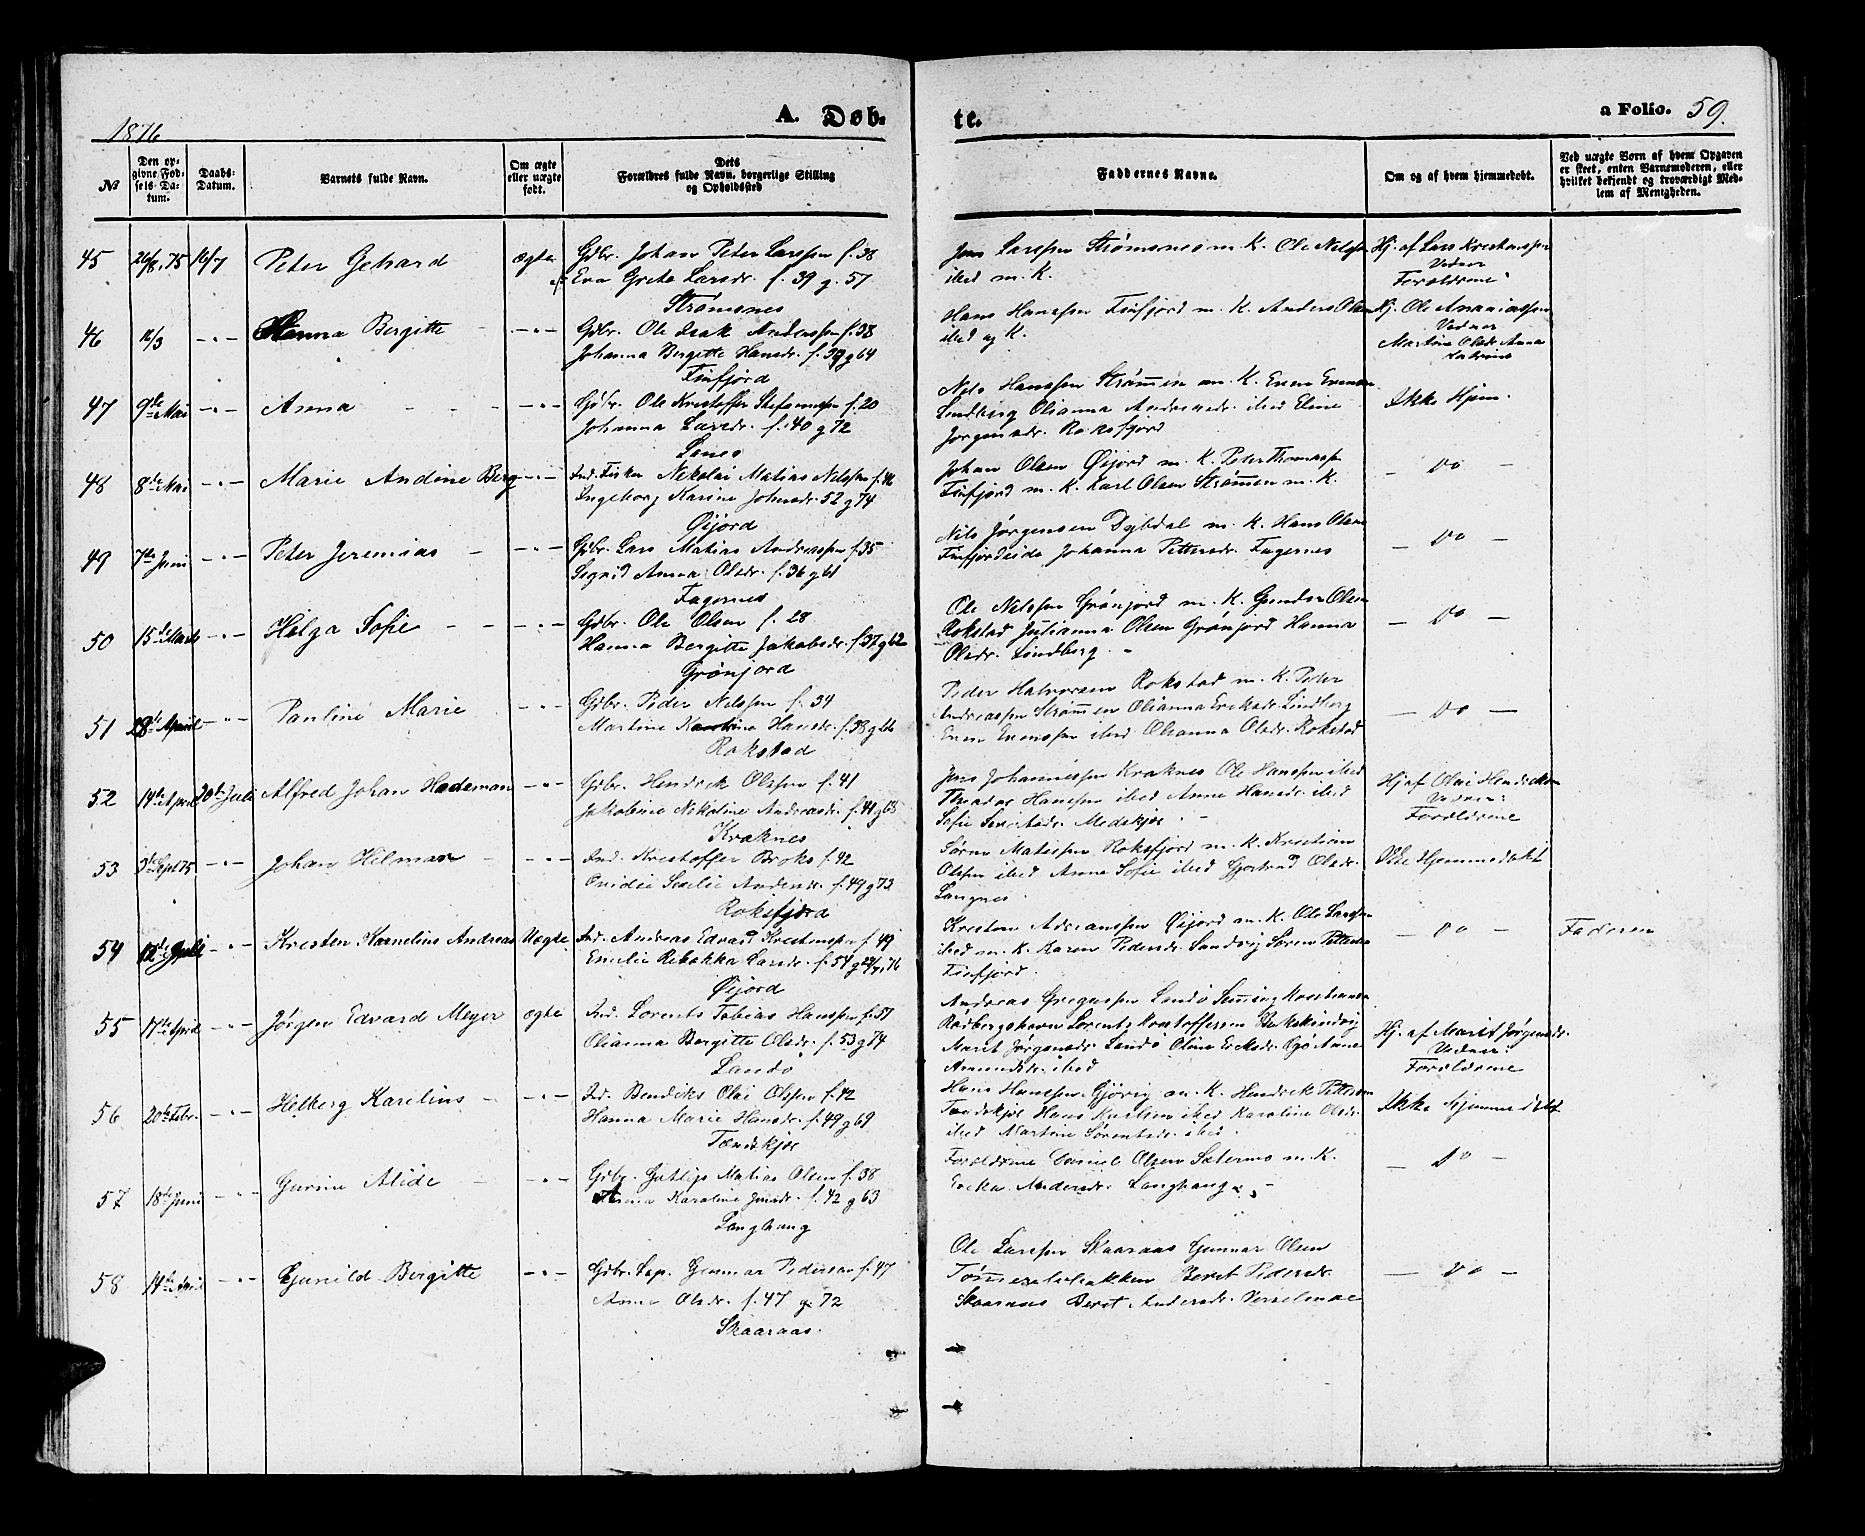 1876
A. Døb-
te.
a Folio. 59.
№
Den op-
givne Fød-
sels-Da-
tum.
Daabs-
Datum.
Barnets fulde Navn.
Om ægte
eller uægte
født.
Dets
Forældres fulde Navn, borgerlige Stilling
og Opholdssted
Faddernes Navne.
Om og af hvem hjemmedøbt.
Ved uægte Børn af hvem Opgaven
er skeet, enten Barnemoderen, eller
hvilket bekjendt og troværdigt Med-
lem af Menigheden.
45 26/8 75 16/7 Peter Gehard ægte Gdbr. Johan Peter Larssen f. 38
Eva Greta Larsdr. f. 39 g. 57
Strømsnes
Jens Larssen Strømsnes m. K. Ole Nilssen
ibed m. K.
Hj. af Lars Kristenssen
Vedner
Forældrene
46 12/3 -"- Hanna Bergitte -"- Gdbr. Ole Isak Andersen f. 38
Johanna Bergitte Hansdr. f. 39 g 64
Finfjord
Hans Hanssen Finfjord m. K. Anders Olsen
ibed og K.
Hj. Ole Ananiassen
Vedner
Martine Olsdr. Anna
47 9de Mai -"- Anna -"- Gdbr. Ole Kristoffer Stefanussen f. 20
Johanna Larsdr. f. 40 g 72
Lanes
Nils Hanssen Strømmen m. K. Even Evensen
Lindberg Olianna Andreasdr. ibed Eline
Jørgensdr. Roksfjord
Ikke Hjem.
48 8de Mai -"- Marie Andine Berg -"- Ind. Fisker Nikolai Matias Nilssen f. 46
Ingeborg Karine Johnsdr. 52 g 74
Øijord
Johan Olsen Øijord m. K. Peter Thomassen
Finfjord m. K. Karl Olsen Strømmen m. K.
— Do —
49 7de Juni -"- Peter Jeremias -"- Gdbr. Lars Matias Andreassen f. 35
Sigrid Anna Olsdr. f. 36 g 61
Fagernes
Nils Jørgensen Dybdal m. K. Hans Olsen
Finfjordeide Johanna Pettersdr. Fagernes
— Do —
50 15de Marts -"- Helga Sofie -"- Gdbr. Ole Olsen f. 28
Hanna Bergitte Jakobsdr. f. 37 g 62
Grønjord
Ole Nilssen Grønjord m. K. Gunder Olsen
Rokstad Julianna Olsen Grønjord Hanna
Olsdr. Lindberg
— Do —
51 28de April -"- Pauline Marie -"- Gdbr. Peder Nilssen f. 34
Martine Hansdr. f. 38 g 66
Rokstad
Peder Halvorsen Rokstad m. K. Peter
Andreassen Strømmen Olianna Eriksdr. Lindberg
Even Evenssen ibed Olianna Olsdr. Rokstad
— Do —
52 14de April 20de Juli Alfred Johan Hademan -"- Gdbr. Hendrik Olssen f. 41
Jakobine Nikoline Andreasdr. f. 41 g 63
Kraknes
Jens Johannessen Kraknes Ole Hanssen ibed
Hanssen ibed Anne Hansdr. ibed
Sofie Medskjær
Hj af Olai Hendriksen
Vedner:
Forældrene
53 3de Sept 75 -"- Johan Hilmar -"- Ind. Kristoffer Broks f. 42
Andersdr. f. 49 g 73
Roksfjord
Søren Matissen Roksfjord m. K. Kristian
Olssen ibed Anne Sofie ibed Gjertrud Olsdr.
Langnes
Ikke Hjemmedøbt
54 12de April -"- Kristen Kornelius Andreas Uægte Ind. Andreas Edvard Kristenssen f. 49
Emelie Rebekka Larsdr. f. 54 76
Øijord
Kristen Adriansen Øijord m. K. Ole Larssen
ibed m. K. Karen Pedersdr. Sandvig Søren Pettersen
Finfjord
— Do —
Faderen
55 17de April -"- Jørgen Edvard Meyer ægte Ind. Lorents Tobias Hanssen f. 51
Olianna Bergitte Olsdr. f. 53 g 74
Landø
Andreas Gregussen Lendø
Rødbergshavn Lorents Kristoffersen
Marit Jørgensdr. Landø Oline Eriksdr. Anne
Amundsdr. ibed
Hj. af Marit Jørgensdr.
Vedner:
Forældrene
56 20de Febr. -"- Helberg Karelius -"- Ind. Bendiks Olai Olssen f. 42
Hanna Marie Hansdr. f. 49 g 69
Tændskjær
Hans Hanssen Gjøvig m. K. Hendrik Pettersen
Tændskjær Hans ibed Karoline Olsdr.
ibed Martine Sørensdr. ibed
Ikke Hjemmedøbt
57 18de Juni -"- Gurine Alide -"- Gdbr. Matias Olsen f. 38
Anna Karoline Jensdr. f. 42 g 63
Langhaug
Forældrene Daniel Olsen Salernes m. K.
Erika Andersdr. Langhaug
— Do —
58 14de April -"- Gjunild Bergitte -"- Gdbr. Lap. Gunnar Pedersen f. 47
Anna Olsdr. f. 47 g. 72
Skaaraas.
Ole Larssen Skaaraas Gunnar Olsen
Tømmeselvbakken Beret Pedersdr.
Skaaraas Beret Andersdr. Vesselmoe
— Do —